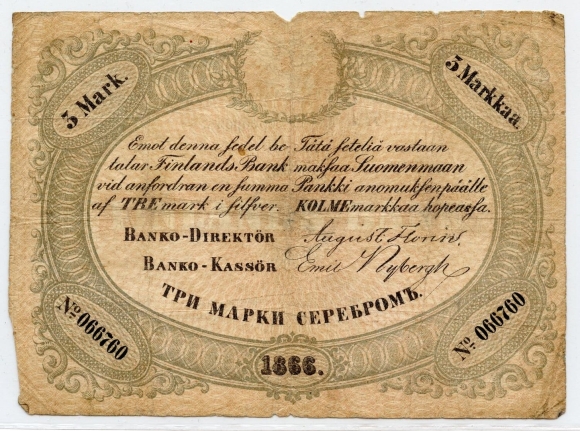 3 Mark.
3 Markkaa.
Emot denna sedel be
talar Finlands Bank
vid anfordran en summa
af TRE mark i silfver.
Tätä seteliä vastaan
maksaa Suomenmaan
Pankki anomuksenpäälle
KOLME markkaa hopeassa.
BANKO-DIREKTÖR
August Florin.
BANKO-KASSÖR
Emil Nybergh
ТРИ МАРКИ СЕРЕБРОМЪ.
No 066760
No 066760
1866.